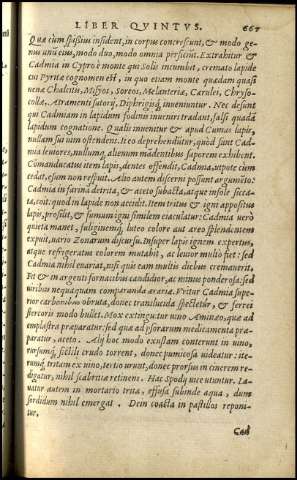 LIBER QVINTVS. 667
Quæ cùm spissius insident, in corpus concrescunt, & modo ge-
nus unū eius, modo duo, modo omnia perficiūt. Extrahitur &
Cadmia in Cypro è monte qui Solis incumbit, cremato lapide
cui Pyritæ cognomen est, in quo etiam monte quadam quasi
uena Chalcitis, Misyos, Soreos, Melanteria, Cærulei, Chryso-
colla, Atramenti sutorij, Diphrigisq́ue inueniuntur. Nec desunt
qui Cadmiam in lapidum fodinis inueniri tradant, falsi quadā
lapidum cognatione. Qualis inuenitur & apud Cumas lapis,
nullam sui uim ostendens. Ii eo deprehendūtur, quòd sunt Cad-
mia leuiores, nullumq́; alienum madentibus saporem exhibent.
Commanducatus item lapis, dentes offendit, Cadmia, utpote cùm
cedat, esum non respuit. Alio autem discerni possunt argumēto:
Cadmia in farinā detrita, & aceto subacta, atque in sole sicca-
ta, coit: quod in lapide non accidit. Item tritus & igni appositus
lapis, prosilit, & fumum igni similem eiaculatur: Cadmia uerò
quieta manet, fuliginemq́; luteo colore aut æreo splendentem
expuit, uario Zonarum discursu. Insuper lapis ignem expertus,
atque refrigeratus colorem mutabit, ac leuior multò fiet: sed
Cadmia nihil euariat, nisi qui eam multis diebus cremauerit.
Fit & in argenti fornacibus candidior, ac minus ponderosa, sed
uiribus nequaquam comparanda æraria. Vritur Cadmia supe-
rior carbonibus obruta, donec translucida spectetur, & ferrei
stercoris modo bullet. Mox extinguitur uino Aminæo, quæ ad
emplastra præparatur: sed quæ ad psorarum medicamenta præ-
paratur, aceto. Alij hoc modo exustam conterunt in uino,
rursumq́; fictili crudo torrent, donec pumicosa uideatur: ite-
rumq́; tritam ex uino, tertiò urunt, donec prorsus in cinerem re-
digatur, nihil scabritiæ retinens. Hac Spodij uice utuntur. La-
uatur autem in mortario trita, effusa subinde aqua, dum
sordidum nihil emergat. Dein coacta in pastillos reponi-
tur.
Cad